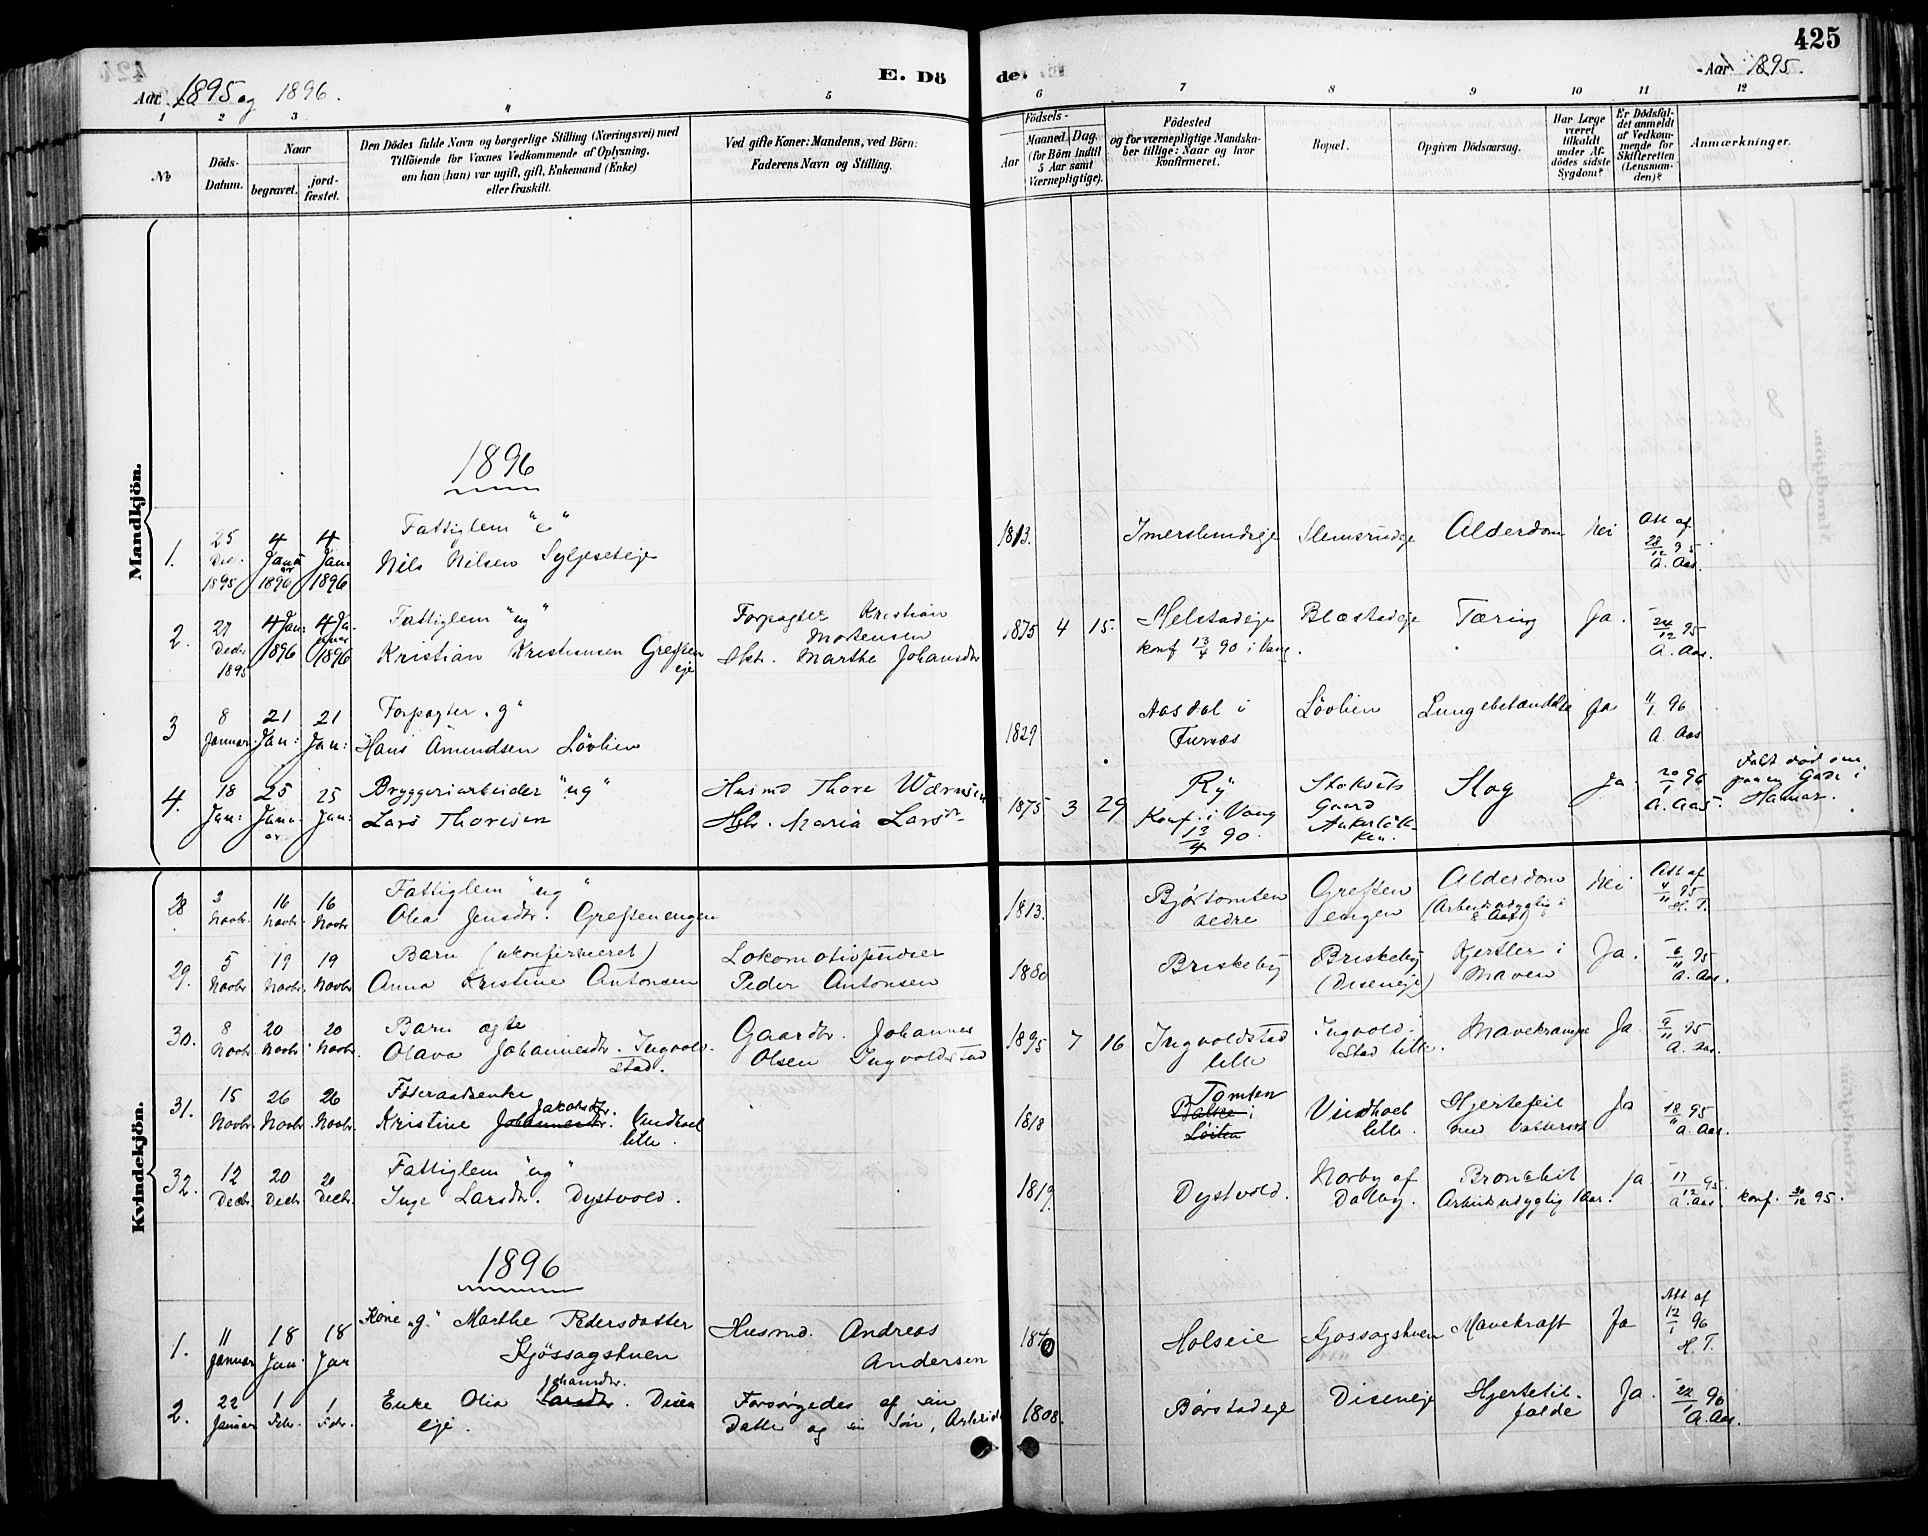 425
E. Dö de.
Aar 1895 og 1896.
Aar 1895.
1 2 3 4 5 6 7 8 9 10 11 12
№
Döds-
Datum.
Naar
begravet.
jord-
fæstet.
Den Dödes fulde Navn og borgerlige Stilling (Næringsvei) med
Tilföiende for Voxnes Vedkommende af Oplysning,
om han (hun) var ugift, gift, Enkemand (Enke)
eller fraskilt.
Ved gifte Koner: Mandens, ved Börn:
Faderens Navn og Stilling.
Födsels-
Aar
Maaned. Dag.
(for Börn indtil
5 Aar samt
Værnepligtige).
Födested
og for værnepligtige Mandska-
ber tillige: Naar og hvor
konfirmeret.
Bopæl.
Opgiven Dödsaarsag.
Har Læge
været
tilkaldt
under Af-
dödes sidste
Sygdom?
Er Dödsfal-
det anmeldt
af Vedkom-
mende for
Skifteretten
(Lensman-
den)?
Anmærkninger.
Mandkjön.
1896
1. 25 Dec. 1895 4 Janu ar 1896 4 Jan: 1896
Fattiglem "e"
Nils Nilsen
1813. Alderdom Nei
Att af 28/12 95 A. Aas.
2. 27 Decbr 1895 4 Jan: 1896 4 Januar 1896
Fattiglem "ug"
Kristian Kristiansen Greften eje
Forpagter Kristian
Mortensen
Hstr. Marthe Johansdtr
1875 4 15. Helstadeje
konf 13/4 90 i Vang.
Blæstadeje Tæring Ja.
24/12 95 A. Aas.
3 8 Januar 21 Jan: 21 Jan:
Forpagter "g"
Hans Amundsen Lövlien
1829 Aasdal i
Furnæs
Lövlien Lungebetændelse Ja
11/1 96 A. Aas
4. 18 Jan: 25 Janu ar 25 Jan:
Bryggeriarbeider "ug"
Lars Thoresen
Husmd Thore Wærnsen
Hstr. Maria Larsdr
1875 3 29 Ry
Konf. i Vang
13/4 90.
Gaard
Slag Ja
20/1 96 A. Aas.
Faldt död om
paa en Gade i
Hamar.
Kvindekjön.
28 3 Novbr. 16 Novbr. 16 Novbr
Fattiglem "ug"
Olea Jensdtr. Greftenengen
1813. Bjørtomten
nedre
Greften
engen
Alderdom
(Arbeidsudygtig i
8 Aar)
Nei
Att af 4/11 95 H. T.
29. 5 Novbr 19 Novbr. 19 Novbr.
Barn (ukonfirmeret)
Anna Kristine Antonsen
Lokomotivpudser
Peder Antonsen
1880 Briskeby
Briskeby
(Diseneje)
Kjertler i
Maven
Ja.
6/11 95 A. Aas.
30. 8 Novbr. 20 Novbr. 20 Novbr.
Barn ægte
Olava Johannesdtr. Ingvold-
stad.
Gaardbr. Johannes
Olsen Ingvoldstad
1895 7 16 Ingvoldstad
lille
Ingvold-
stad lille.
Mavekrampe Ja
9/11 95 A. Aas.
31. 15 Novbr. 26 Novbr. 26 Novbr.
Föderaadsenke
Jakobsdtr.
Kristine Johannesdtr. Vindhoel
lille.
1818 Tomten
Balke i
Löiten
Vindhoel
lille.
Hjertefeil
med Vattersot
Ja
18/11 95 A. Aas.
32. 12 Decbr. 20 Decbr. 20 Decbr.
Fattiglem "ug"
Inge Larsdtr. Dystvold.
1819. Dystvold.
Norby af
Dalby.
Bronchit
Arbeidsudygtig 1 Aar.
Ja
17/12 95. A. Aas.
konf. 20/12 95.
1896
1. 11 Januar 18 Jan. 18 Jan
Kone "g." Marthe Pedersdatter
Kjössagstuen
Husmd. Andreas
Andersen
1840 Holseie
Kjossagstuen Mavekræft Ja
Att af 12/1 96 H. T.
2. 22 Januar 1 Febr. 1 Febr.
Johansdtr.
Enke Olia Larsdtr. Disen
eje.
Forsørgedes af sin
Datter og sin Sön, Arbeider
1808. Børstadeje
Diseneje Hjertetil-
fælde
Ja.
22/1 96 A. Aas.